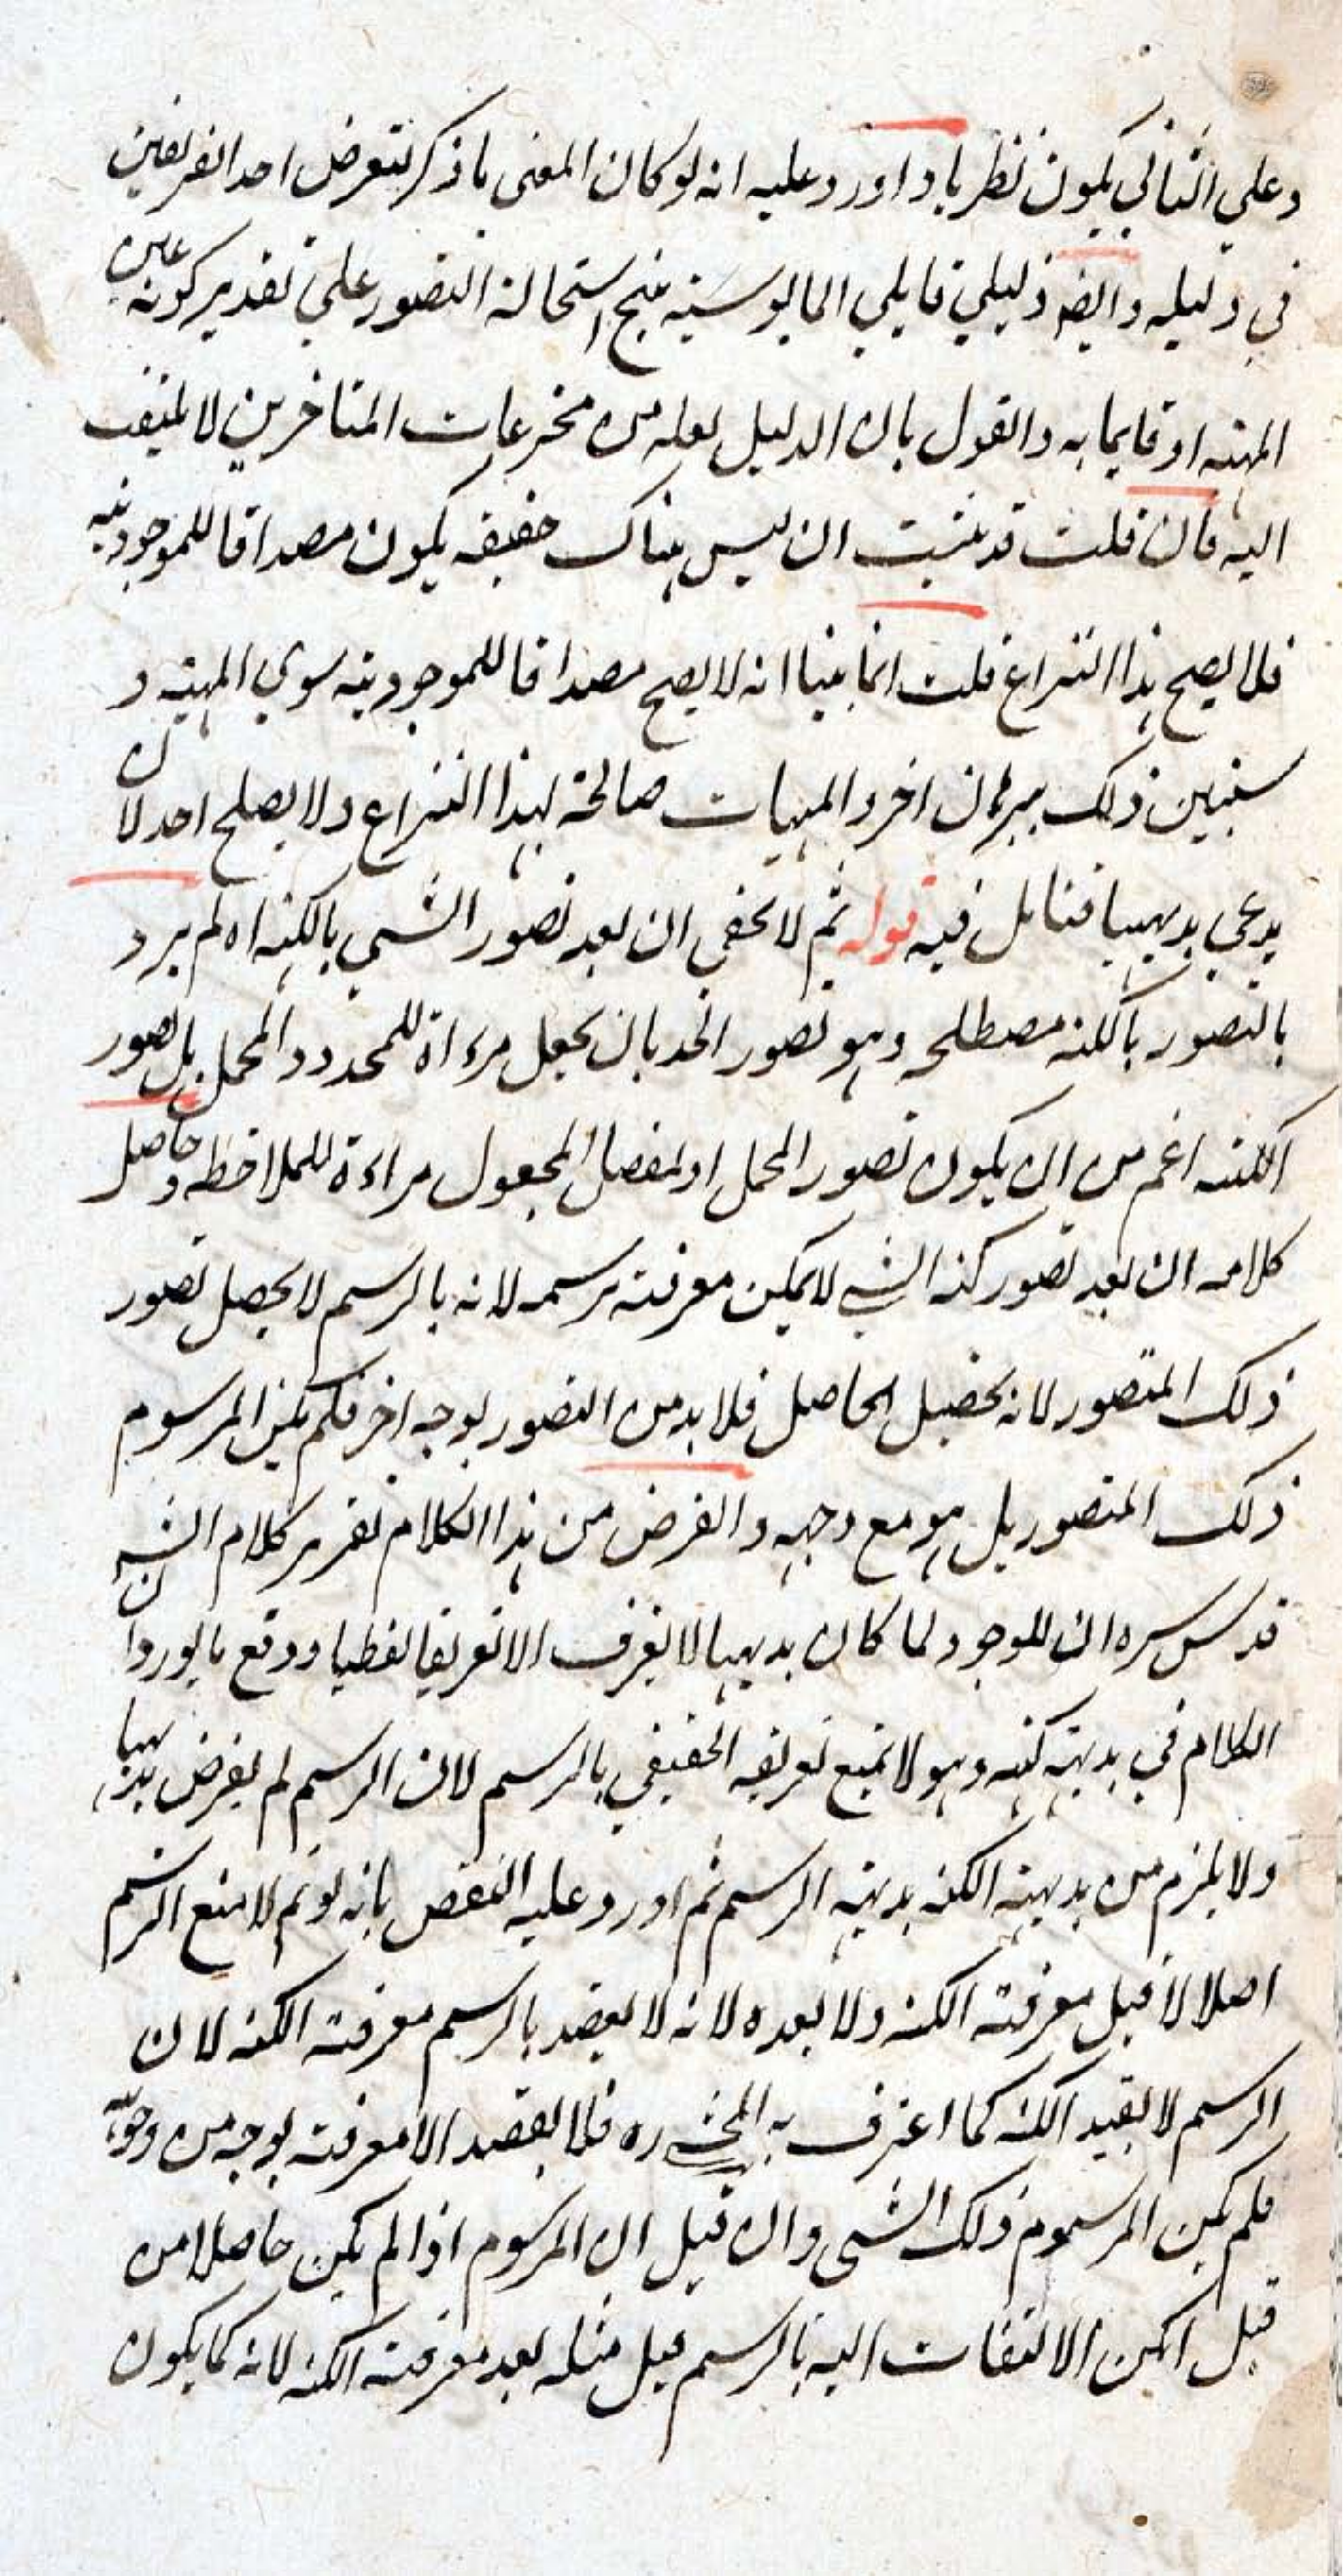 وعلي الثاني يكون نظريا واورد عليه انه لو كان المعنى ما ذكر لتعرض احد الفريقين
في دليله وايضا دليلي قايلي المايوسية ينتج استحالة التصور علي تقدير كونه عين
المهية او قايما به والقول بان الدليل لعله من مخترعات المتاخرين لا يلتفت
اليه فان قلت قد بينت ان ليس هناك حقيقة يكون مصداقا للموجودية
فلا يصح هذا النزاع قلت انما بينا انه لا يصح مصداقا للموجودية سوي المهية و
سنبين ذلك ببرهان اخر والمهيات صالحة لهذا النزاع ولا يصلح احد لان
يدعي بديهيا فتامل فيه قوله ثم لا يخفي ان بعد تصور الشي بالكنه اه لم يرد
بالتصور بالكنه مصطلحه وهو تصور الحد بان يجعل مراة للمحدود المجمل بل تصور
الكنه اعم من ان يكون تصور المجمل او المفصل المجعول مراءة للملاحظة وحاصل
كلامه ان بعد تصور كنه الشي لا يمكن معرفته برسمه لانه بالرسم لا يحصل تصور
ذلك المتصور لانه تحصيل الحاصل فلا بد من التصور بوجه اخر فلم يكن المرسوم
ذلك المتصور بل هو مع وجهه والغرض من هذا الكلام تقرير كلام الش
قدس سره ان الوجود لما كان بديهيا لا يعرف الا تعريفا لفظيا ودفع ما يورد ان
الكلام في بديهة كنهه وهو لا يمنع تعريفه الحقيقي بالرسم لان الرسم لم يفرض بديهيا
ولا يلزم من بديهة الكنه بديهة الرسم ثم اورد عليه النقض بانه لو تم لامتنع الرسم
اصلا لا قبل معرفة الكنه ولا بعده لانه لا يقصد بالرسم معرفة الكنه لان
الرسم لا يفيد الكنه كما اعترف به المحشي ره فلا يقصد الا معرفته بوجه من وجوه
فلم يكن المرسوم ذلك الشي وان قيل ان المرسوم اذا لم يكن حاصلا من
قبل امكن الالتفات اليه بالرسم قيل مثله بعد معرفة الكنه لانه كما يكون